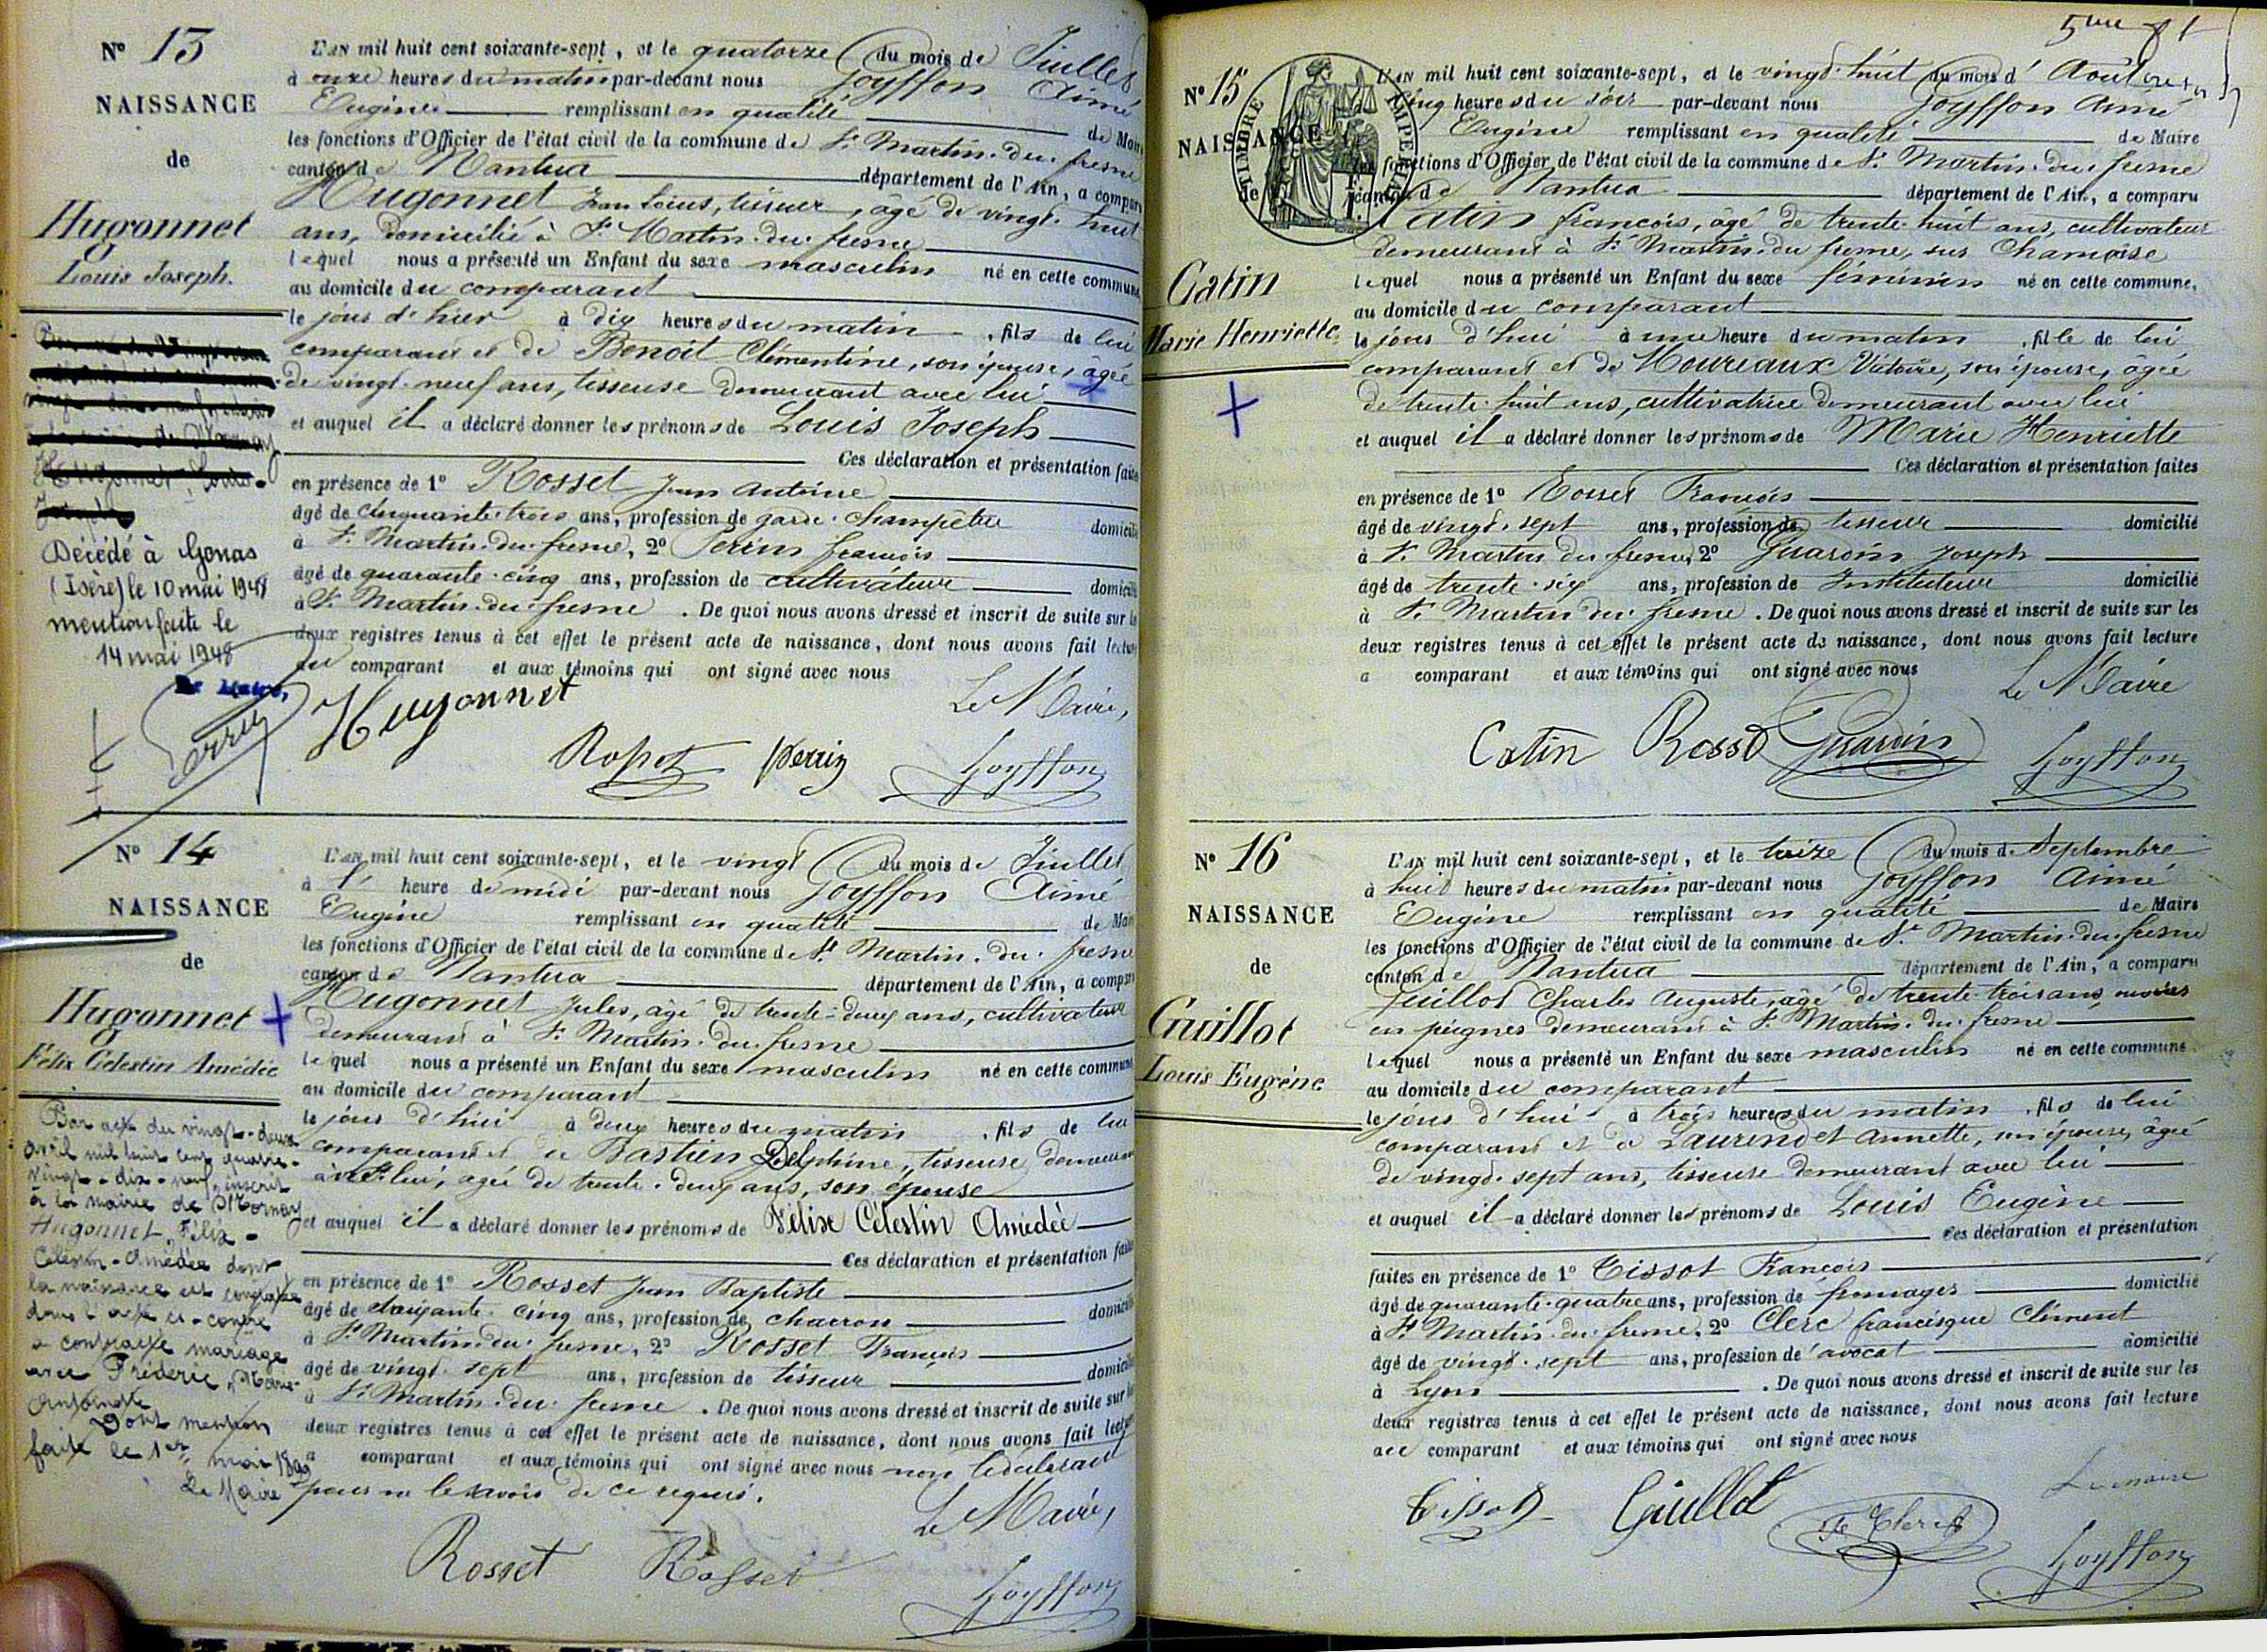 N° 13
NAISSANCE
de
Hugonnet
Louis Joseph.
Décédé à Gonas
(Isère) le 10 mai 1948
mention faite le
14 mai 1948
L'AN mil huit cent soixante-sept, et le quatorze du mois de Juillet
à onze heures du matin par-devant nous Goyffon Aimé
Eugène remplissant en qualité de Maire
les fonctions d'Officier de l'état civil de la commune de St Martin-du-fresne
canton de Nantua département de l'Ain, a comparu
Hugonnet Jean Louis, tisseur, âgé de vingt-huit
ans, domicilié à St Martin-du-fresne
lequel nous a présenté un Enfant du sexe masculin né en cette commune
au domicile du comparant
le jour d'hier à dix heures du matin, fils de lui
comparant et de Benoit Clémentine, son épouse, âgée
de vingt-neuf ans, tisseuse demeurant avec lui
et auquel il a déclaré donner les prénoms de Louis Joseph
Ces déclaration et présentation faites
en présence de 1° Rosset Jean Antoine
âgé de cinquante-trois ans, profession de garde-champêtre domicilié
à St Martin-du-fresne, 2° Perrin françois
âgé de quarante-cinq ans, profession de cultivateur domicilié
à St Martin-du-fresne. De quoi nous avons dressé et inscrit de suite sur les
deux registres tenus à cet effet le présent acte de naissance, dont nous avons fait lecture
au comparant et aux témoins qui ont signé avec nous
Le Maire,
Hugonnet
Rosset Perrin Goyffon
N° 14
NAISSANCE
de
Hugonnet
Félix Célestin Amédée
Par acte du vingt-deux
avril mil huit cent quatre-
vingt-dix-neuf, inscrit
à la mairie de Mornay
Hugonnet, Félix-
Célestin-Amédée dont
la naissance est constatée
dans l'acte ci-contre
a contracté mariage
avec Fréderic, Marie-
Antoinette
Dont mention
faite le 1er mai 1899
Le Maire
L'AN mil huit cent soixante-sept, et le vingt du mois de Juillet
à 1 heure de midi par-devant nous Goyffon Aimé
Eugène remplissant en qualité de Maire
les fonctions d'Officier de l'état civil de la commune de St Martin-du-fresne
canton de Nantua département de l'Ain, a comparu
Hugonnet Jules, âgé de trente-deux ans, cultivateur
demeurant à St Martin-du-fresne
lequel nous a présenté un Enfant du sexe masculin né en cette commune
au domicile du comparant
le jour d'hui à deux heures du matin, fils de lui
comparant et de Bastien Delphine, tisseuse demeurant
avec lui, agée de trente-deux ans, son épouse
et auquel il a déclaré donner les prénoms de Félise Célestin Amédée
Ces déclaration et présentation faites
en présence de 1° Rosset Jean Baptiste
âgé de cinquante-cinq ans, profession de charron domicilié
à St Martin-du-fresne, 2° Rosset François
âgé de vingt-sept ans, profession de tisseur domicilié
à St Martin-du-fresne. De quoi nous avons dressé et inscrit de suite sur les
deux registres tenus à cet effet le présent acte de naissance, dont nous avons fait lecture
a comparant et aux témoins qui ont signé avec nous non le déclarant
pour ne le savoir de ce requis.
Le Maire,
Rosset Rosset Goyffon
N° 15
NAISSANCE
de
Catin
Marie Henriette
TIMBRE IMPERIAL
L'AN mil huit cent soixante-sept, et le vingt-huit du mois d'Août
cinq heures du soir par-devant nous Goyffon Aimé
Eugène remplissant en qualité de Maire
les fonctions d'Officier de l'état civil de la commune de St Martin-du-fresne
canton de Nantua département de l'Ain, a comparu
Catin françois, âgé de trente-huit ans, cultivateur
demeurant à St Martin-du-fresne, sur Chamoise
lequel nous a présenté un Enfant du sexe féminin né en cette commune,
au domicile du comparant
le jour d'hui à une heure du matin, fille de lui
comparant et de Moureaux Victoire, son épouse, âgée
de trente-huit ans, cultivatrice demeurant avec lui
et auquel il a déclaré donner les prénoms de Marie Henriette
Ces déclaration et présentation faites
en présence de 1° Rosset François
âgé de vingt-sept ans, profession de tisseur domicilié
à St Martin du fresne, 2° Guardin Joseph
âgé de trente-six ans, profession de Instituteur domicilié
à St Martin du fresne. De quoi nous avons dressé et inscrit de suite sur les
deux registres tenus à cet effet le présent acte de naissance, dont nous avons fait lecture
a comparant et aux témoins qui ont signé avec nous
Le Maire
Catin Rosset Guardin Goyffon
N° 16
NAISSANCE
de
Guillot
Louis Eugène
L'AN mil huit cent soixante-sept, et le treize du mois de Septembre
à huit heures du matin par-devant nous Goyffon Aimé
Eugène remplissant en qualité de Maire
les fonctions d'Officier de l'état civil de la commune de St Martin-du-fresne
canton de Nantua département de l'Ain, a comparu
Guillot Charles Auguste, âgé de trente-trois ans, ouvrier
en peignes demeurant à St Martin-du-fresne
lequel nous a présenté un Enfant du sexe masculin né en cette commune
au domicile du comparant
le jour d'hui à trois heures du matin, fils de lui
comparant et de Laurendet Annette, son épouse, âgée
de vingt-sept ans, tisseuse demeurant avec lui
et auquel il a déclaré donner les prénoms de Louis Eugène
Ces déclaration et présentation
faites en présence de 1° Tissot François
âgé de quarante-quatre ans, profession de fromager domicilié
à St Martin-du-fresne, 2° Clerc francisque Clément
âgé de vingt-sept ans, profession d'avocat domicilié
à Lyon. De quoi nous avons dressé et inscrit de suite sur les
deux registres tenus à cet effet le présent acte de naissance, dont nous avons fait lecture
au comparant et aux témoins qui ont signé avec nous
Le maire
Tissot Guillot Fe Clerc Goyffon